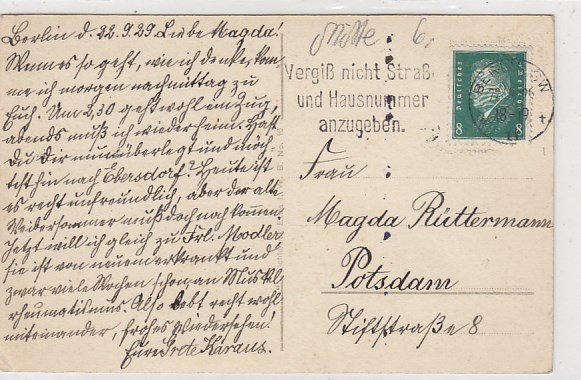 Berlin d. 22.9.29. Liebe Magda!
Wenn es so geht, wie ich denke, kom-
me ich morgen nachmittag zu
Euch. Um 2,30 geht wohl ein Zug,
abends muß ich wieder heim. Hast
Du Dir nun überlegt und möch-
test hin nach Ebersdorf? Heute ist
es recht unfreundlich, aber der alte
Weibersommer muß doch noch kommen.
Jetzt will ich gleich zu Frl. Modler,
sie ist von neuem erkrankt und
zwar viele Wochen schon an Muskel-
rheumatismus. Also lebt recht wohl
miteinander, frohes Wiedersehen!
Eure Grete Karaus.
Mitte
Vergiß nicht Straße
und Hausnummer
anzugeben.
BERLIN SW
Deutsches Reich
8 8
Frau
Magda Rüttermann
Potsdam
Stiftstraße 8